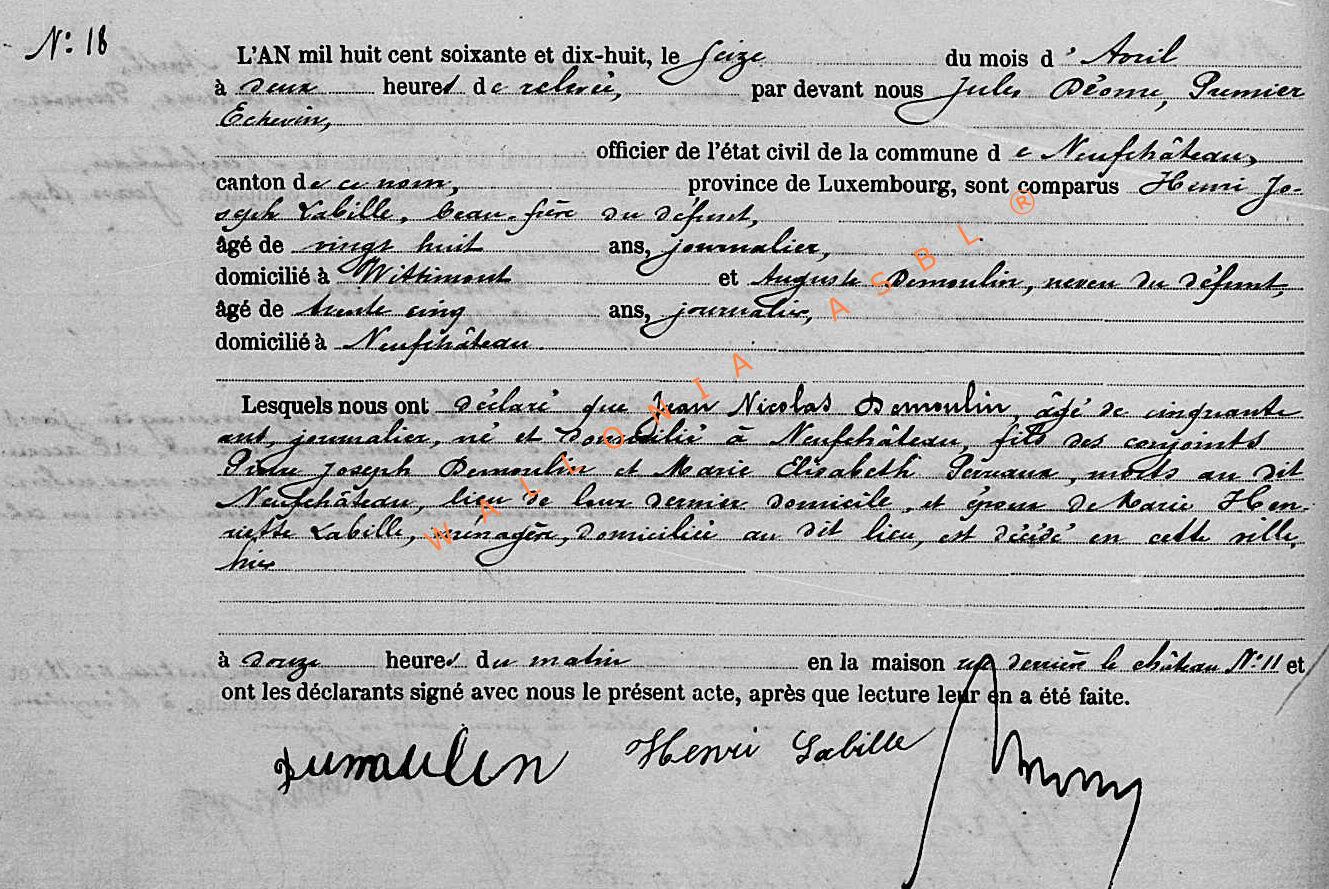 N° 18
L'AN mil huit cent soixante et dix-huit, le Seize du mois d'Avril
à deux heures de relevée, par devant nous Jules Déome, Premier
Echevin,
officier de l'état civil de la commune de Neufchâteau,
canton de ce nom, province de Luxembourg, sont comparus Henri Jo-
seph Labille, beau-frère du défunt,
âgé de vingt huit ans, journalier,
domicilié à Wittimont et Auguste Demoulin, neveu du défunt,
âgé de trente cinq ans, journalier,
domicilié à Neufchâteau.
Lesquels nous ont déclaré que Jean Nicolas Demoulin, âgé de cinquante
ans, journalier, né et domicilié à Neufchâteau, fils des conjoints
Pierre Joseph Demoulin et Marie Elisabeth, morts au dit
Neufchâteau, lieu de leur dernier domicile, et époux de Marie Hen-
riette Labille, ménagère, domiciliée au dit lieu, est décédé en cette ville,
hier
à douze heures du matin en la maison rue derrière le château N° 11 et
ont les déclarants signé avec nous le présent acte, après que lecture leur en a été faite.
Dumoulin Henri Labille
WALLONIA ASBL ®